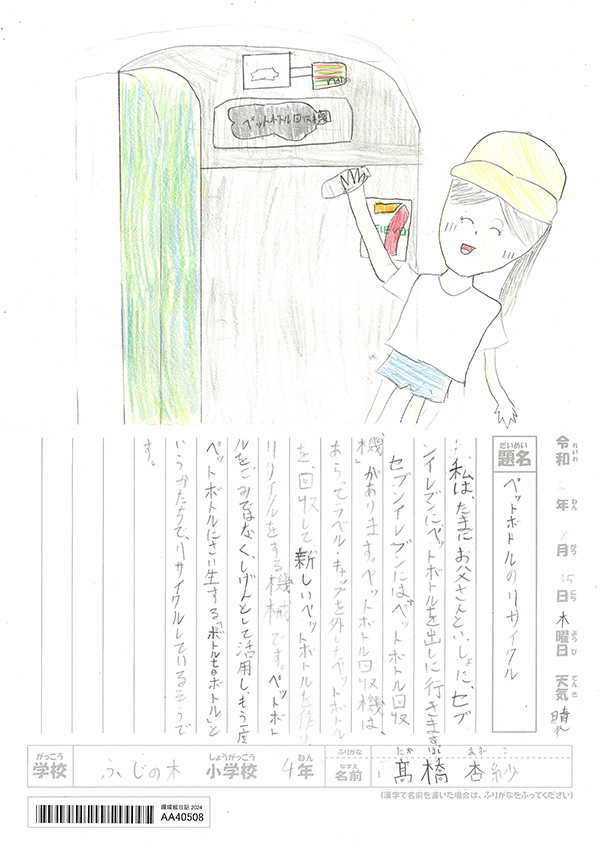 nanaco
ペットボトル回収機
令和 年 8月 15日 木曜日 天気 晴れ
れいわ ねん がつ にち ようび てんき
だいめい
題名
ペットボトルのリサイクル
私は、たまにお父さんといっしょに、セブ
ンイレブンにペットボトルを出しに行きます。
セブンイレブンには「ペットボトル回収
機」があります。ペットボトル回収機は、
あらってラベル・キャップを外したペットボトル
を、回収して新しいペットボトルを作り
リサイクルをする機械です。ペットボト
ルをごみではなく、しげんとして活用し、もう一度
ペットボトルにさい生する「ボトルtoボトル」と
いうかたちで、リサイクルしているそうで
す。
がっこう
学校
ふじの木
しょうがっこう
小学校
4
ねん
年
ふりがな
なまえ
名前
たか はし
髙橋 杏紗
(漢字で名前を書いた場合は、ふりがなをふってください)
環境絵日記 2024
AA40508